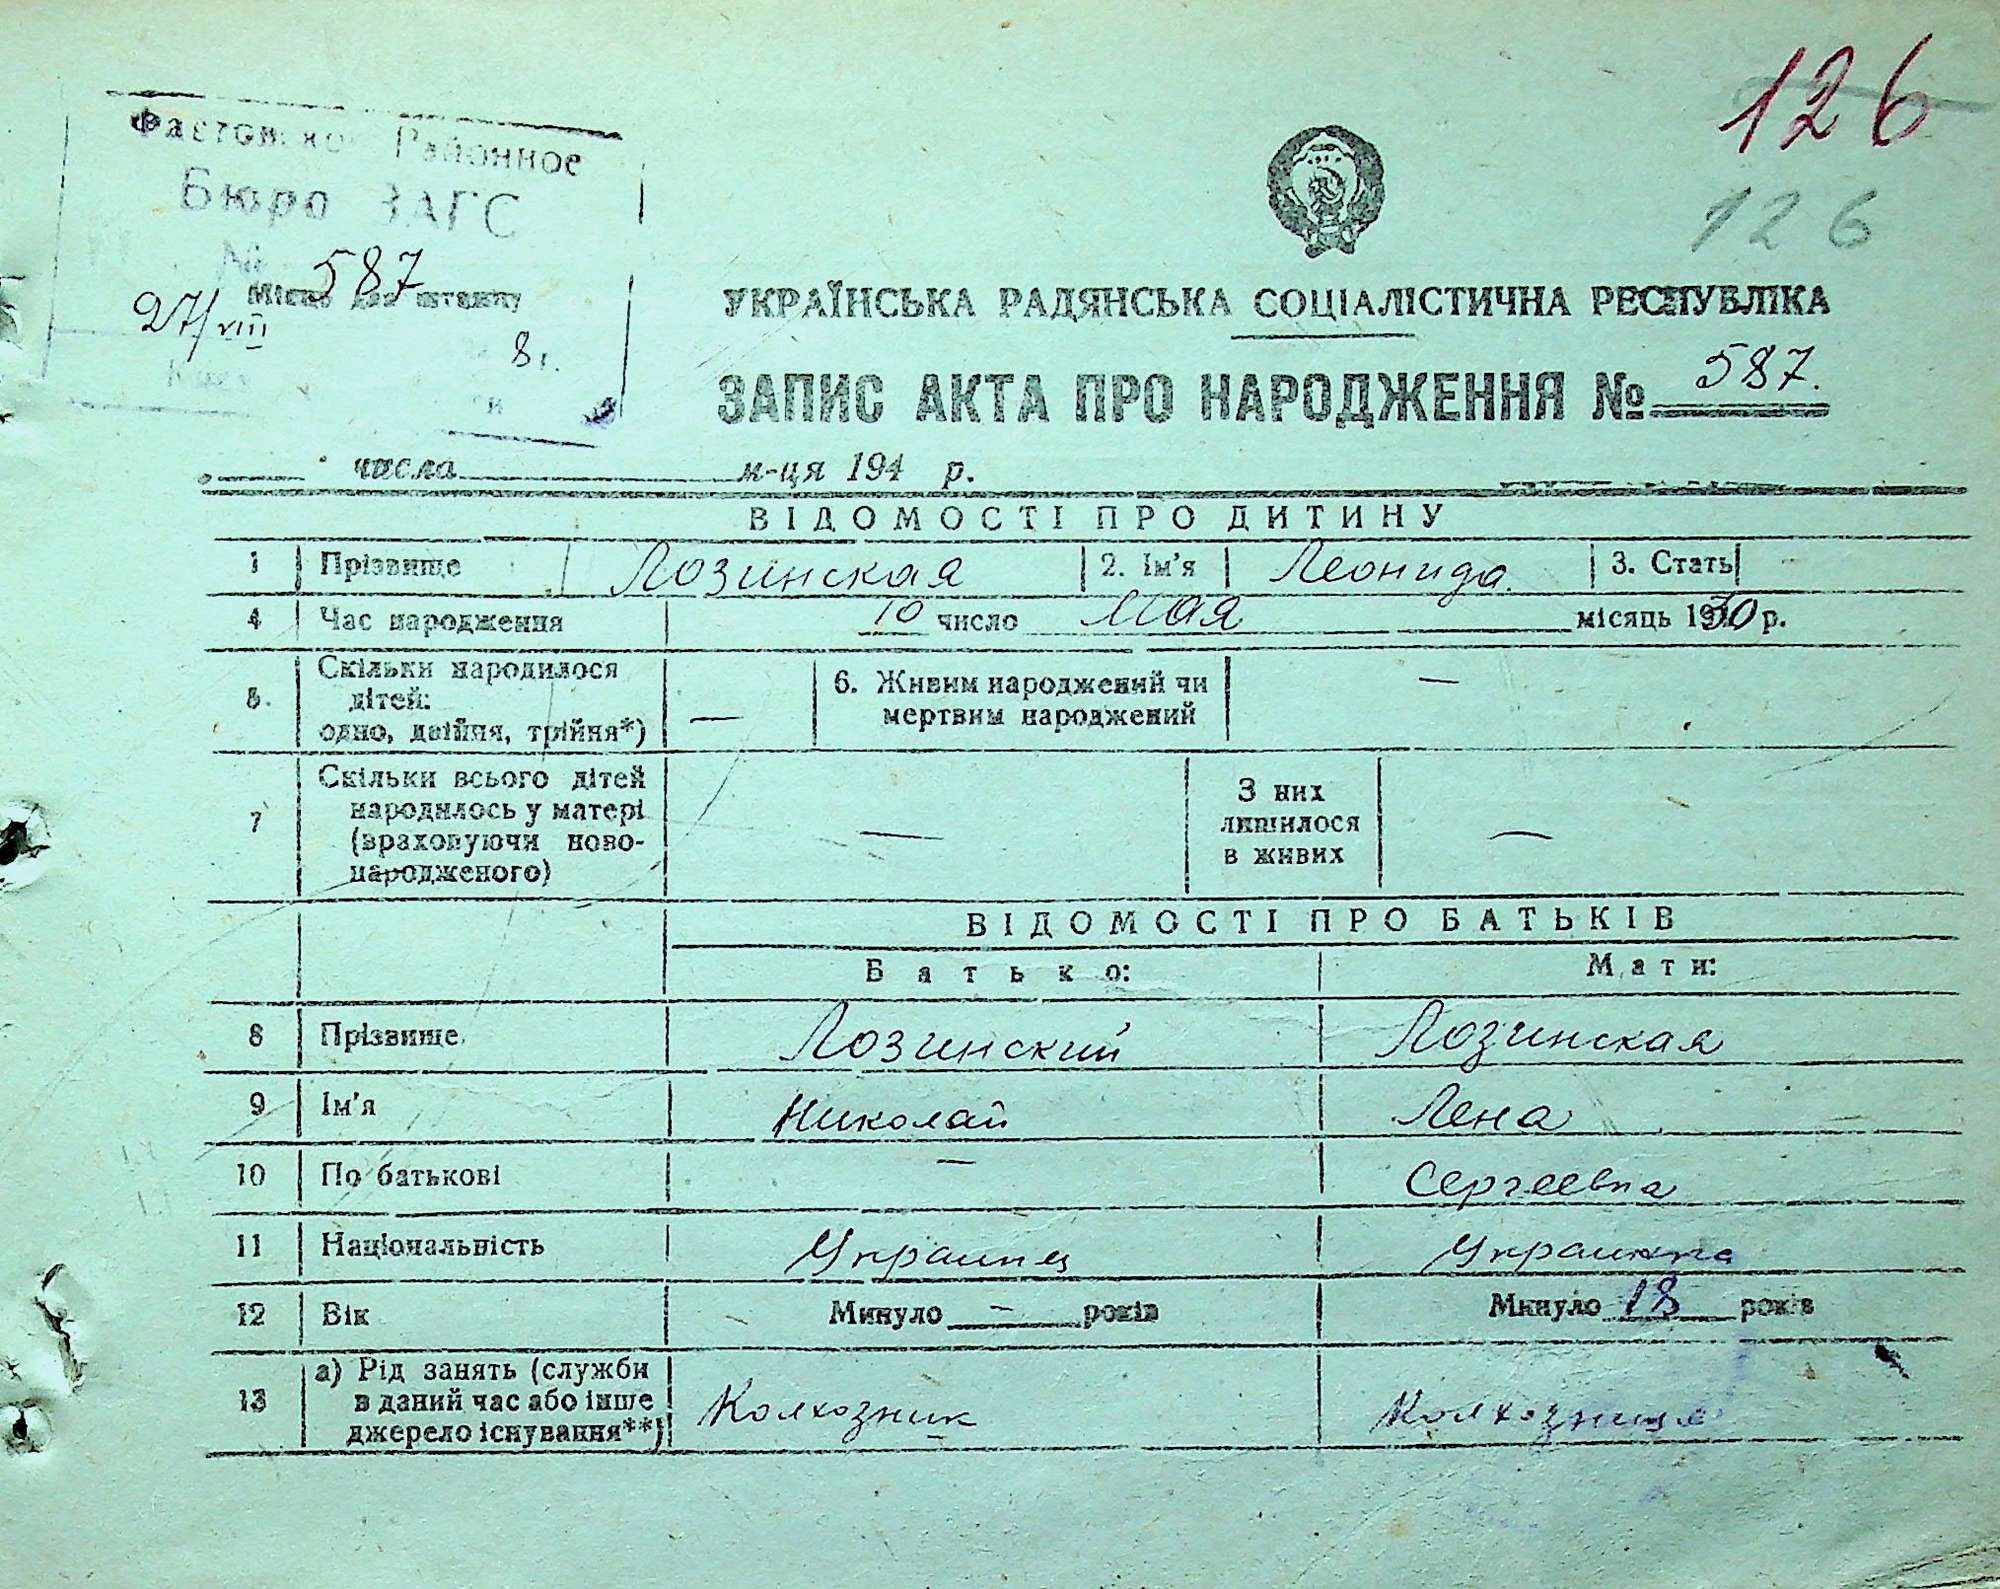 126
126
Районное
Бюро ЗАГС
№ 587
Місце для штампу
27/VIII
8 г.
УКРАЇНСЬКА РАДЯНСЬКА СОЦІАЛІСТИЧНА РЕСПУБЛІКА
ЗАПИС АКТА ПРО НАРОДЖЕННЯ № 587.
числа м-ця 194 р.
ВІДОМОСТІ ПРО ДИТИНУ
1 Прізвище Лозинская 2. Ім'я Леонида. 3. Стать
4 Час народження 10 число Мая місяць 1930 р.
5. Скільки народилося
дітей:
одно, двійня, трійня*) —
6. Живим народжений чи
мертвим народжений —
7 Скільки всього дітей
народилось у матері
(враховуючи ново-
народженого) —
З них
лишилося
в живих —
ВІДОМОСТІ ПРО БАТЬКІВ
Батько: Мати:
8 Прізвище Лозинский Лозинская
9 Ім'я Николай Лена
10 По батькові — Сергеевна
11 Національність Украинец Украинка
12 Вік Минуло — років Минуло 18 років
13 а) Рід занять (служби
в даний час або інше
джерело існування**) Колхозник Колхозница